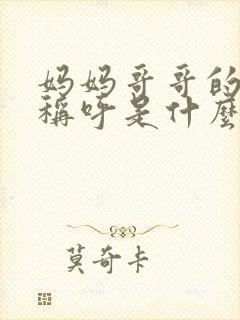 妈妈哥哥的
稱呼是什麼
莫奇卡